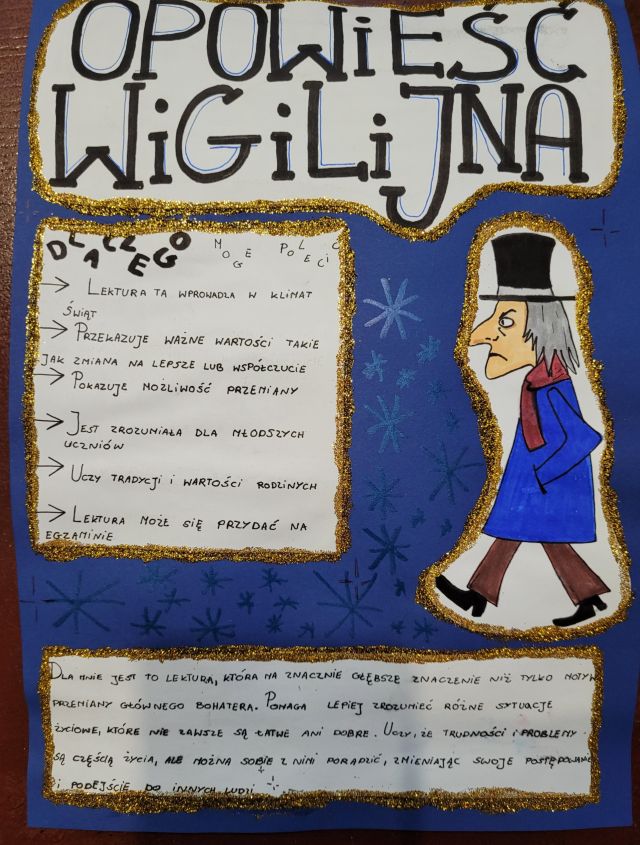 OPOWiEŚĆ
WiGiLiJNA
DLACZEGO MOGĘ POLECIĆ
→ LEKTURA TA WPROWADZA W KLIMAT
ŚWIĄT
→ PRZEKAZUJE WAŻNE WARTOŚCI TAKIE
JAK ZMIANA NA LEPSZE LUB WSPÓŁCZUCIE
→ POKAZUJE MOŻLIWOŚĆ PRZEMIANY
→ JEST ZROZUMIAŁA DLA MŁODSZYCH
UCZNIÓW
→ UCZY TRADYCJI I WARTOŚCI RODZINYCH
→ LEKTURA MOŻE SIĘ PRZYDAĆ NA
EGZAMINIE
DLA MNIE JEST TO LEKTURA, KTÓRA MA ZNACZNIE GŁĘBSZE ZNACZENIE NIŻ TYLKO MOTYW
PRZEMIANY GŁÓWNEGO BOHATERA. POMAGA LEPIEJ ZROZUMIEĆ RÓŻNE SYTUACJE
ŻYCIOWE, KTÓRE NIE ZAWSZE SĄ ŁATWE ANI DOBRE. UCZY, ŻE TRUDNOŚCI I PROBLEMY
SĄ CZĘŚCIĄ ŻYCIA, ALE MOŻNA SOBIE Z NIMI PORADZIĆ, ZMIENIAJĄC SWOJE POSTĘPOWANIE
I PODEJŚCIE DO INNYCH LUDZI.